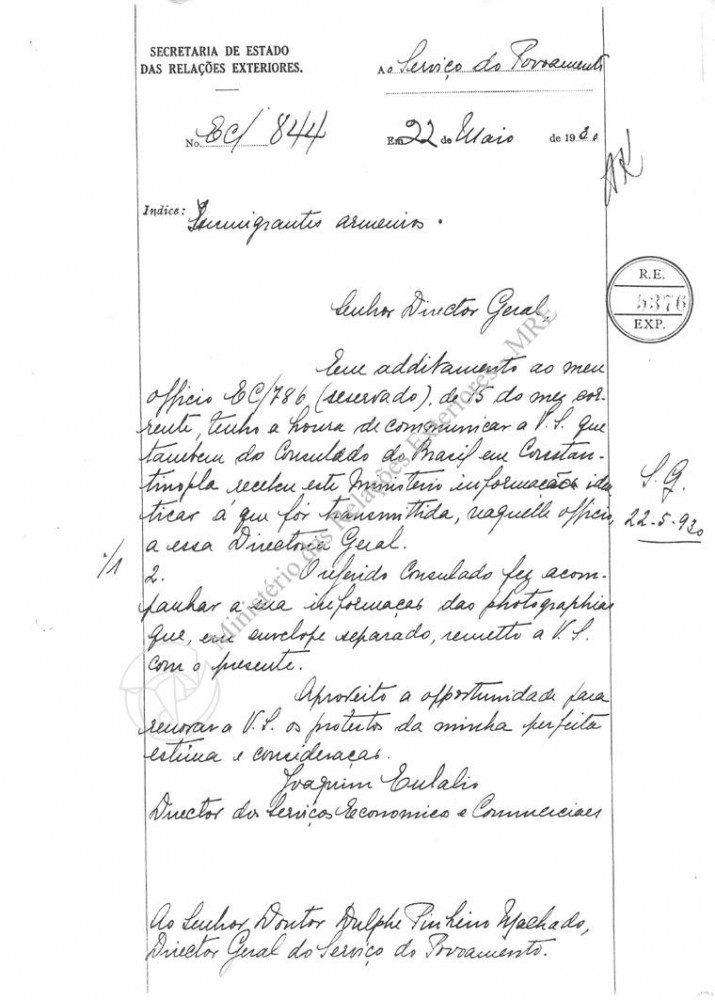 SECRETARIA DE ESTADO
DAS RELAÇÕES EXTERIORES.
Ao Serviço do Povoamento
No. EC/ 844
Em 22 de Maio de 1930
Indice: Immigrantes armenios.
R.E.
5376
EXP.
Senhor Director Geral,
Em additamento ao meu
officio EC/786 (reservado), de 15 do mez cor-
rente, tenho a honra de communicar a V. S. que
tambem do Consulado do Brasil em Constan-
tinopla recebeu este Ministerio informações iden
ticas á que foi transmittida, naquelle officio,
a essa Directoria Geral.
S. G.
22-5-930
1/1
2. O referido Consulado fez acom-
panhar a sua informação das photographias
que, em envelope separado, remetto a V. S.
com o presente.
Aproveito a opportunidade para
renovar a V. S. os protestos da minha perfeita
estima e consideração.
Joaquim Eulalio
Director dos Serviços Economicos e Commerciaes
Ao Senhor Doutor Dulphe Pinheiro Machado,
Director Geral do Serviço do Povoamento.
Ministério das Relações Exteriores - MRE